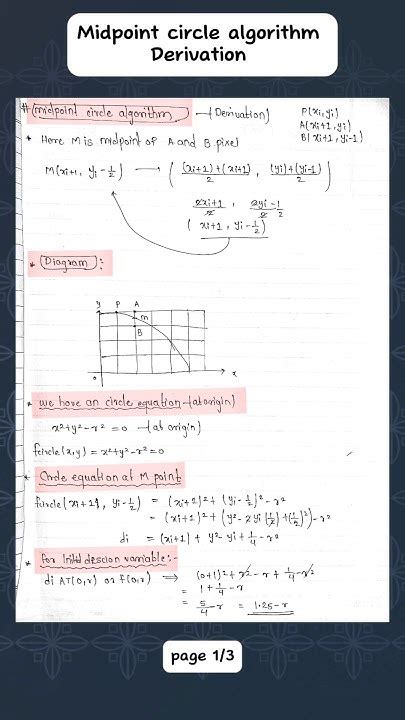 Midpoint circle algorithm
Derivation
# midpoint circle algorithm → (Derivation) P(xi, yi)
A(xi+1, yi)
* Here M is midpoint of A and B pixel B(xi+1, yi-1)
M(xi+1, yi - 1/2) → ( (xi+1)+(xi+1)/2 , (yi)+(yi-1)/2 )
2xi+1/2 , 2yi-1/2
( xi+1, yi-1/2 )
* Diagram :
y P A
M
B
0 x
* we have an circle equation - (at origin)
x²+y²-r² = 0 - (at origin)
fcircle(x,y) = x²+y²-r² = 0
* Circle equation at M point
fcircle(xi+1, yi-1/2) = (xi+1)² + (yi-1/2)² - r²
= (xi+1)² + (y² - 2yi(1/2) + (1/2)²) - r²
di = (xi+1) + y² - yi + 1/4 - r²
* for Initial descion variable:-
di AT(0,r) or f(0,r) ⇒ (0+1)² + r² - r + 1/4 - r²
= 1 + 1/4 - r
= 5/4 - r = 1.25 - r
page 1/3